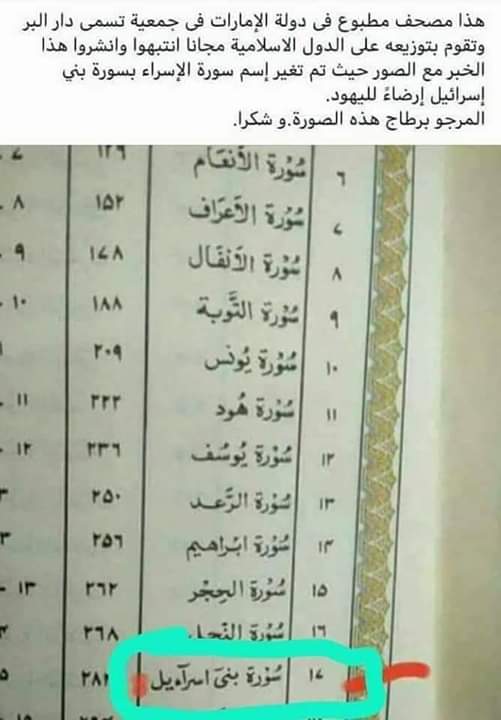 هذا مصحف مطبوع فى دولة الإمارات فى جمعية تسمى دار البر
وتقوم بتوزيعه على الدول الاسلامية مجانا انتبهوا وانشروا هذا
الخبر مع الصور حيث تم تغير إسم سورة الإسراء بسورة بني
إسرائيل إرضاءً لليهود.
المرجو برطاج هذه الصورة.و شكرا.
٦ سُورَة الأنعَام ١٢٩
٧ سُورَة الأعرَاف ١٥٢ ٨
٨ سُورَة الأنفَال ١٧٨ ٩
٩ سُورَة التَّوبَة ١٨٨ ١٠
١٠ سُورَة يُونُس ٢٠٩
١١ سُورَة هُود ٢٢٢ ١١
١٢ سُورَة يُوسُف ٢٣٦ ١٢
١٣ سُورَة الرَّعد ٢٥٠
١٤ سُورَة ابراهيم ٢٥٦
١٥ سُورَة الحِجْر ٢٦٢ ١٣
١٦ سُورَة النَّحل ٢٦٨
١٧ سُورَة بنىٓ اسرآءيل